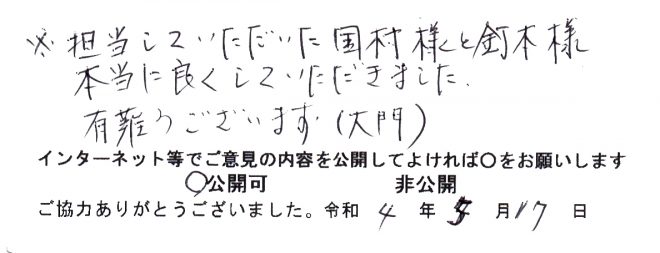 ※担当していただいた国村様と釘本様
本当に良くしていただきました.
有難うございます(大門)
インターネット等でご意見の内容を公開してよければ〇をお願いします
〇公開可　非公開
ご協力ありがとうございました。令和 4 年 5 月 17 日